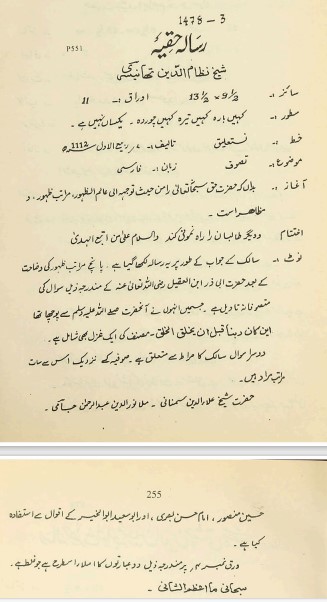 1478 - 3
رسالہ حقیہ
P551
شیخ نظام الدین تھانیسری
سائز :۔ 9½ × 13½ اوراق :۔ 11
سطور :۔ کہیں بارہ کہیں تیرہ کہیں چوردہ ۔ یکساں نہیں ہے ۔
خط :۔ نستعلیق تالیف :۔ ربیع الاول 1112ھ
موضوع :۔ تصوف زبان :۔ فارسی
آغاز :۔ بداں کہ حضرت حق سبحانہ تعالیٰ را من حیث توجہ الی عالم الظہور، مراتب ظہور، و
مظاہر است ۔
اختتام و دیگر طالبان را راہ نمونی کند والسلام علیٰ من اتبع الہدیٰ
نوٹ :۔ سالک کے جواب کے طور پر یہ رسالہ لکھا گیا ہے ۔ پانچ مراتب ظہور کی وضاحت
کے بعد حضرت ابی ذر ابن العقیل رضی اللہ تعالیٰ عنہ کے مندرجہ ذیل سوال کی
متصوفانہ تاویل ہے ۔ جسمیں انہوں نے آنحضرت صلی اللہ علیہ وسلم سے پوچھا تھا
این کان ربنا قبل ان یخلق الخلق ۔ مصنف کی ایک غزل بھی شامل ہے ۔
دوسرا سوال سالک کا مراط سے متعلق ہے ۔ صوفیہ کے نزدیک اس سے سات
مراتب مراد ہیں ۔
حضرت شیخ علاء الدین سمنانی ۔ ملا نور الدین عبدالرحمٰن جامی ۔
255
حسین منصور ، امام حسن بصری ، اور ابو سعید ابو الخیر کے اقوال سے استفادہ
کیا ہے ۔
ورق نمبر پر مندرجہ ذیل دو عبارتوں کا املاء اسطرح ہے جو غلط ہے ۔
سبحانی ما اعظم الشانی ۔